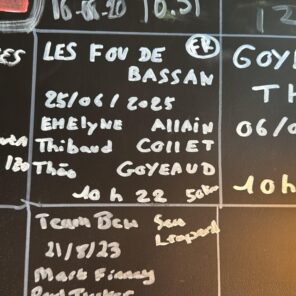 16-06-20
10.51
12
LES FOU DE FR
BASSAN
25/06/2025
EMELYNE ALLAIN
Thibaud COLLET
Théo GOYEAUD
10 h 22 50km
GOYE
TH
06/0
10h
120
Team Ben Sea
Leopard
21/8/23
Mark Finney
Paul Tucker